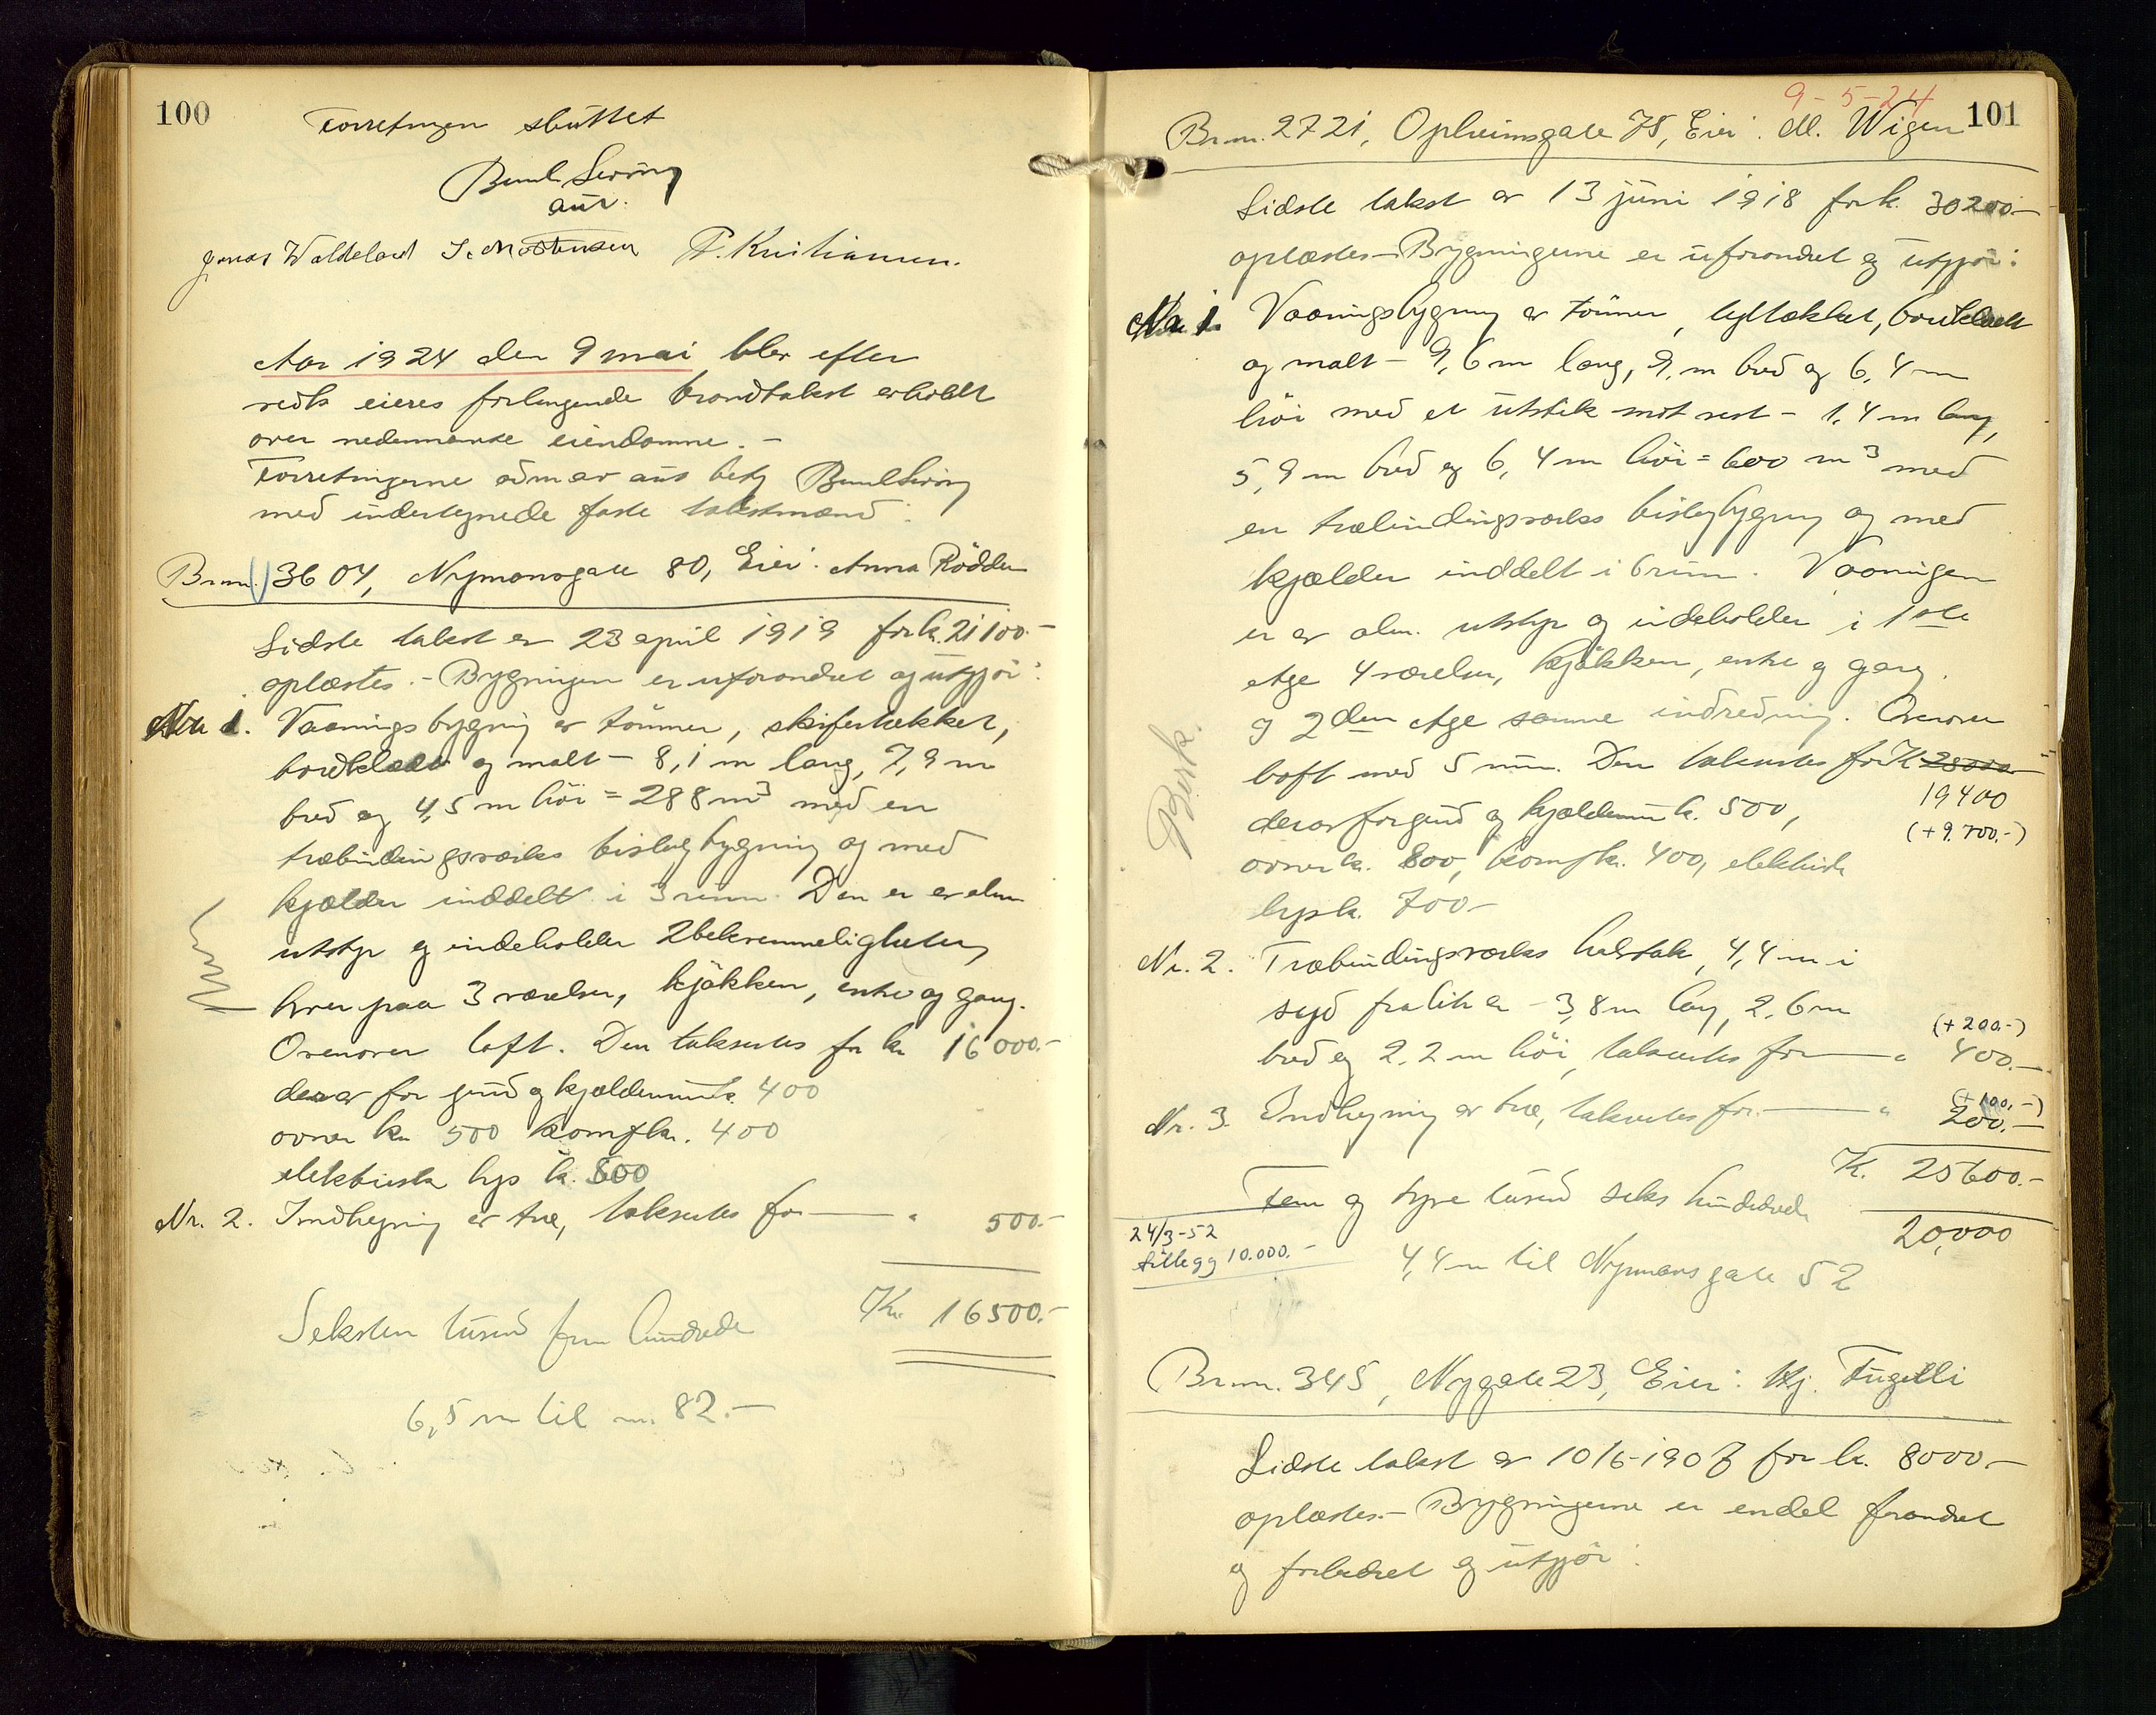 100
Forretningen sluttet
aut.
Jonas Waldeland I. Mostensen P. Kristiansen.
Aar 1924 den 9 mai blev efter
vedk eieres forlangende brandtakst avholdt
over nedennævnte eiendomme. -
Forretningerne adm av aut best
med undertegnede faste takstmænd:
Brnr. 3604, Nymansgate 80, Eier: Anna Rödder
Sidste takst av 23 april 1919 for k. 21100.-
oplæstes. - Bygningen er uforandret og utgjör:
No 1. Vaaningsbygning av tömmer, skifertækket,
bordklædt og malt - 8,1 m lang, 7,9 m
bred og 4,5 m höi = 288 m3 med en
træbindingsværks bislagbygning og med
kjælder inddelt i 3 rum. Den er av alm
utstyr og indeholder 2 bekvemmeligheter,
hver paa 3 værelser, kjökken, entre og gang.
Ovenover loft. Den takseres for kr 16000.-
derav for grund og kjældermur k. 400
ovner kr 500 komf kr. 400
elektrisk lys k. 500
Nr. 2. Indhegning av træ, takseres for — " 500.-
Seksten tusind fem hundrede Kr. 16500.-
6,5 m til nr. 82.-
9-5-24
101
Brnr. 2721, Opheimsgate 75, Eier: M. Wigen
Sidste takst av 13 juni 1918 for k. 30200.-
oplæstes - Bygningerne er uforandret og utgjör:
No 1. Vaaningsbygning av tömmer, tegltækket, bordklædt
og malt - 9,6 m lang, 9, m bred og 6,4 m
höi med et utstik mot vest - 1,4 m lang,
5,9 m bred og 6,4 m höi = 600 m3 med
en træbindingsværks bislagbygning og med
kjælder inddelt i 6 rum. Vaaningen
er av alm. utstyr og indeholder i 1ste
etge 4 værelser, kjökken, entre og gang.
og 2den etge samme indredning. Ovenover
loft med 5 rum. Den takseres for K 25000
19400
derav for grund og kjældermur k. 500,
(+9.700.-)
ovner k. 800, komf k. 400, elektrisk
lys k. 700-
Nr. 2. Træbindingsværks halvtak, 4,4 m i
syd fra litr a - 3,8 m lang, 2,6 m
(+200.-)
bred og 2,2 m höi, takseres for — " 400.-
(+100.-)
Nr. 3. Indhegning av træ, takseres for — " 200.-
K. 25600.-
Fem og tyve tusind seks hundrede
20,000
24/3-52
tillegg 10.000.-
4,4 m til Nymansgate 52
Brnr. 345, Nygate 23, Eier: Kj. Fugelli
Sidste takst av 10/6-1907 for k. 8000.-
oplæstes. - Bygningerne er endel forandret
og forbedret og utgjör: